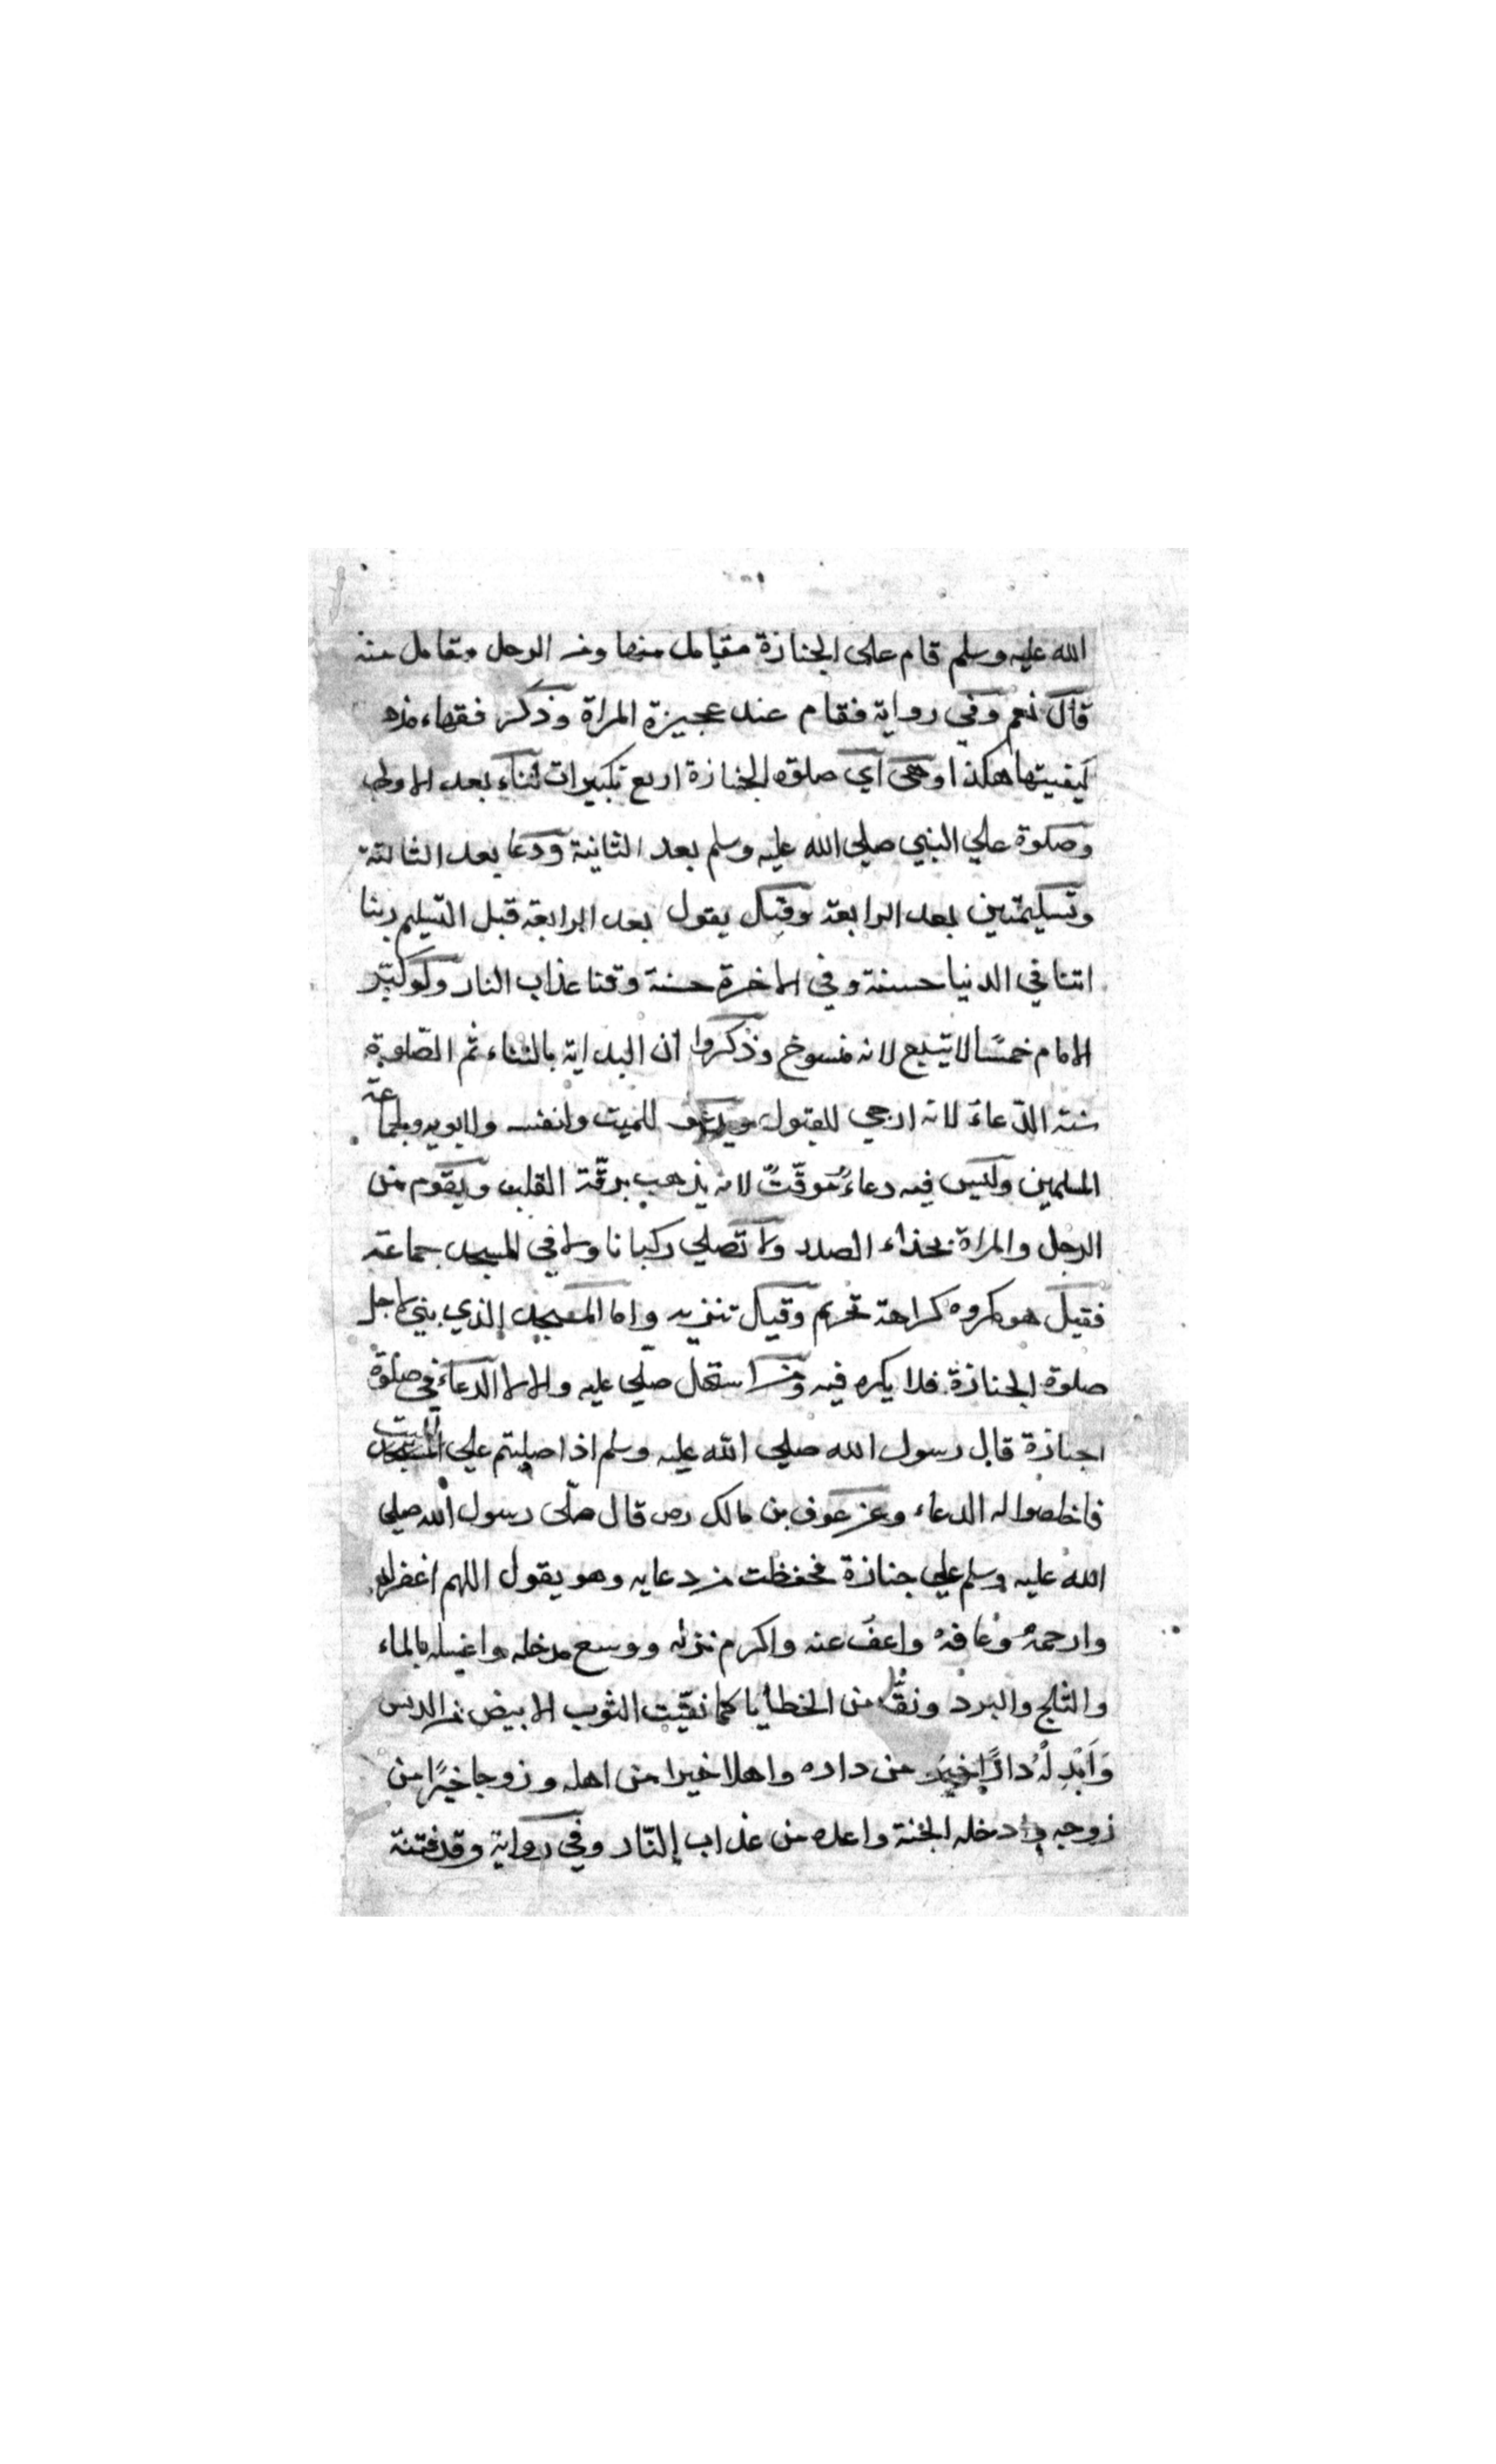 الله عليه وسلم قام على الجنازة مقامك منها ومن الرجل مقامك منه
قال نعم وفي رواية فقام عند عجيزة المراة وذكر فقهاء
كيفيتها هكذا وهي اي صلوة الجنازة اربع تكبيرات ثناء بعد الاولى
وصلوة علي النبي صلي الله عليه وسلم بعد الثانية ودعا بعد الثالثة
وتسليمتين بعد الرابعة وقيل يقول بعد الرابعة قبل التسليم ربنا
اتنا في الدنيا حسنة وفي الاخرة حسنة وقنا عذاب النار ولو كبّر
الامام خمسًا لا يتبع لانه منسوخ وذكروا ان البداية بالثناء ثم الصّلوة
سنة الدّعاء لانه ارجي للقبول ويدعو للميت ولنفسه ولابويه ولجماعة
المسلمين وليس فيه دعاءٌ مُوَقّتٌ لانه يذهب برقّة القلب ويقوم من
الرجل والمراة بحذاء الصدر ولا تصلي ركبانا ولا في المسجد جماعة
فقيل هو مكروه كراهة تحريم وقيل تنزيه واما المسجد الذي بني لاجل
صلوة الجنازة فلا يكره فيه ومن استهل صلّي عليه والا لا الدعاء في صلوة
اجنازة قال رسول الله صلي الله عليه وسلم اذا صليتم علي الميت
فاخلصوا له الدعاء وعن عوف بن مالك رض قال صلّى رسول الله صلي
الله عليه وسلم علي جنازة فحفظت من دعايه وهو يقول اللهم اغفر له
وارحمهُ وعافهْ واعفُ عنه واكرم نزله ووسع مدخله واغسله بالماء
والثلج والبرد ونقّه من الخطايا كما نقّيت الثوب الابيض من الدنس
وَاَبْدِلْهُ دارًا خيرا من داره واهلا خيرا من اهله وزوجا خيرًا من
زوجه وادخله الجنة واعده من عذاب النّار وفي رواية وقه فتنة